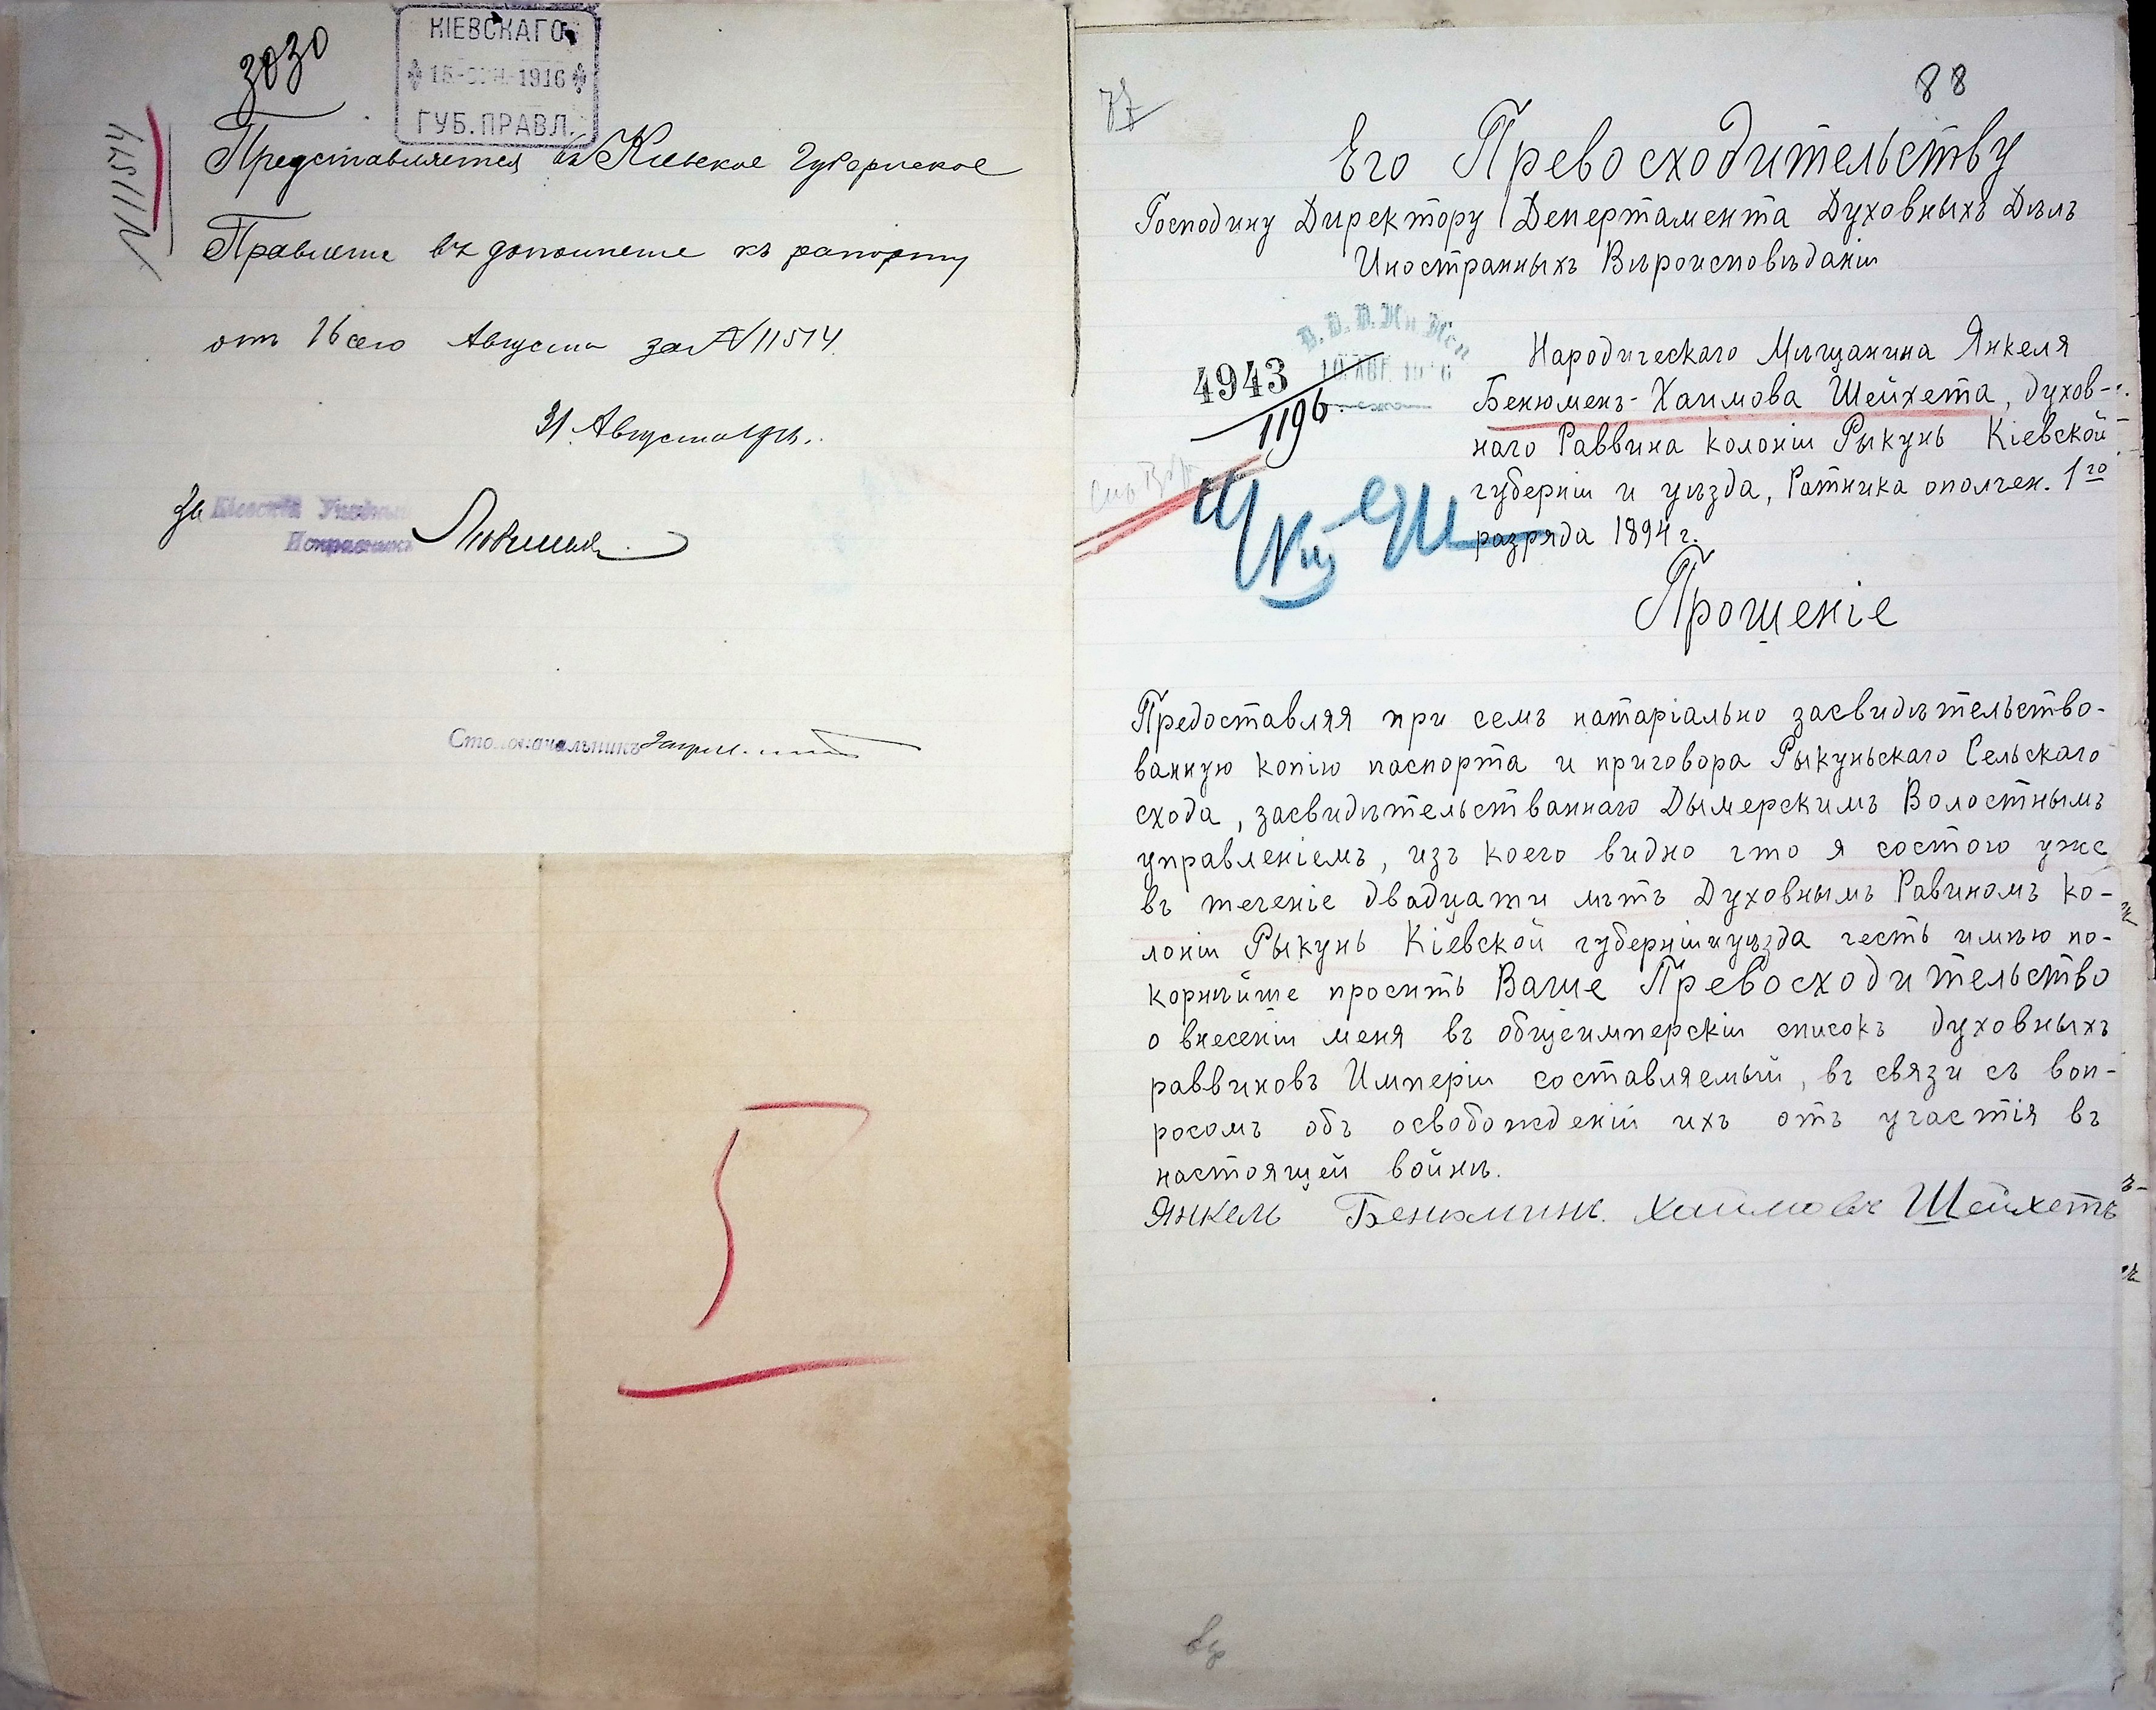 3030
КІЕВСКАГО
1916
ГУБ. ПРАВЛ.
N 11514
Представляется въ Киевское Губернское
Правление въ дополнение къ рапорту
отъ 16 сего Августа за N 11514.
31 Августа
За Исправника
Столоначальникъ
88
77
Его Превосходительству
Господину Директору Депертамента Духовныхъ Дѣлъ
Иностранныхъ Вѣроисповѣданіи
4943
1196
Народическаго Мѣщанина Янкеля
Бенюмень-Хаимова Шейхета, духов-
наго Раввина колоніи Рыкунь Кіевской
губерніи и уѣзда, Ратника ополчен. 1го
разряда 1894 г.
Прошеніе
Предоставляя при семъ натаріально засвидѣтельство-
ванную копію паспорта и приговора Рыкуньскаго Сельскаго
схода, засвидѣтельстваннаго Дымерскимъ Волостнымъ
управленіемъ, изъ коего видно что я состою уже
въ теченіе двадцати лѣтъ Духовнымъ Равиномъ ко-
лоніи Рыкунь Кіевской губерніи и уѣзда честь имѣю по-
корнѣйше просить Ваше Превосходительство
о внесеніи меня въ общеимперскіи списокъ духовныхъ
раввиновъ Имперіи составляемый, въ связи съ воп-
росомъ объ освобожденій ихъ отъ участія въ
настоящей войнѣ.
Янкель Бенюминъ Хаимовъ Шейхетъ